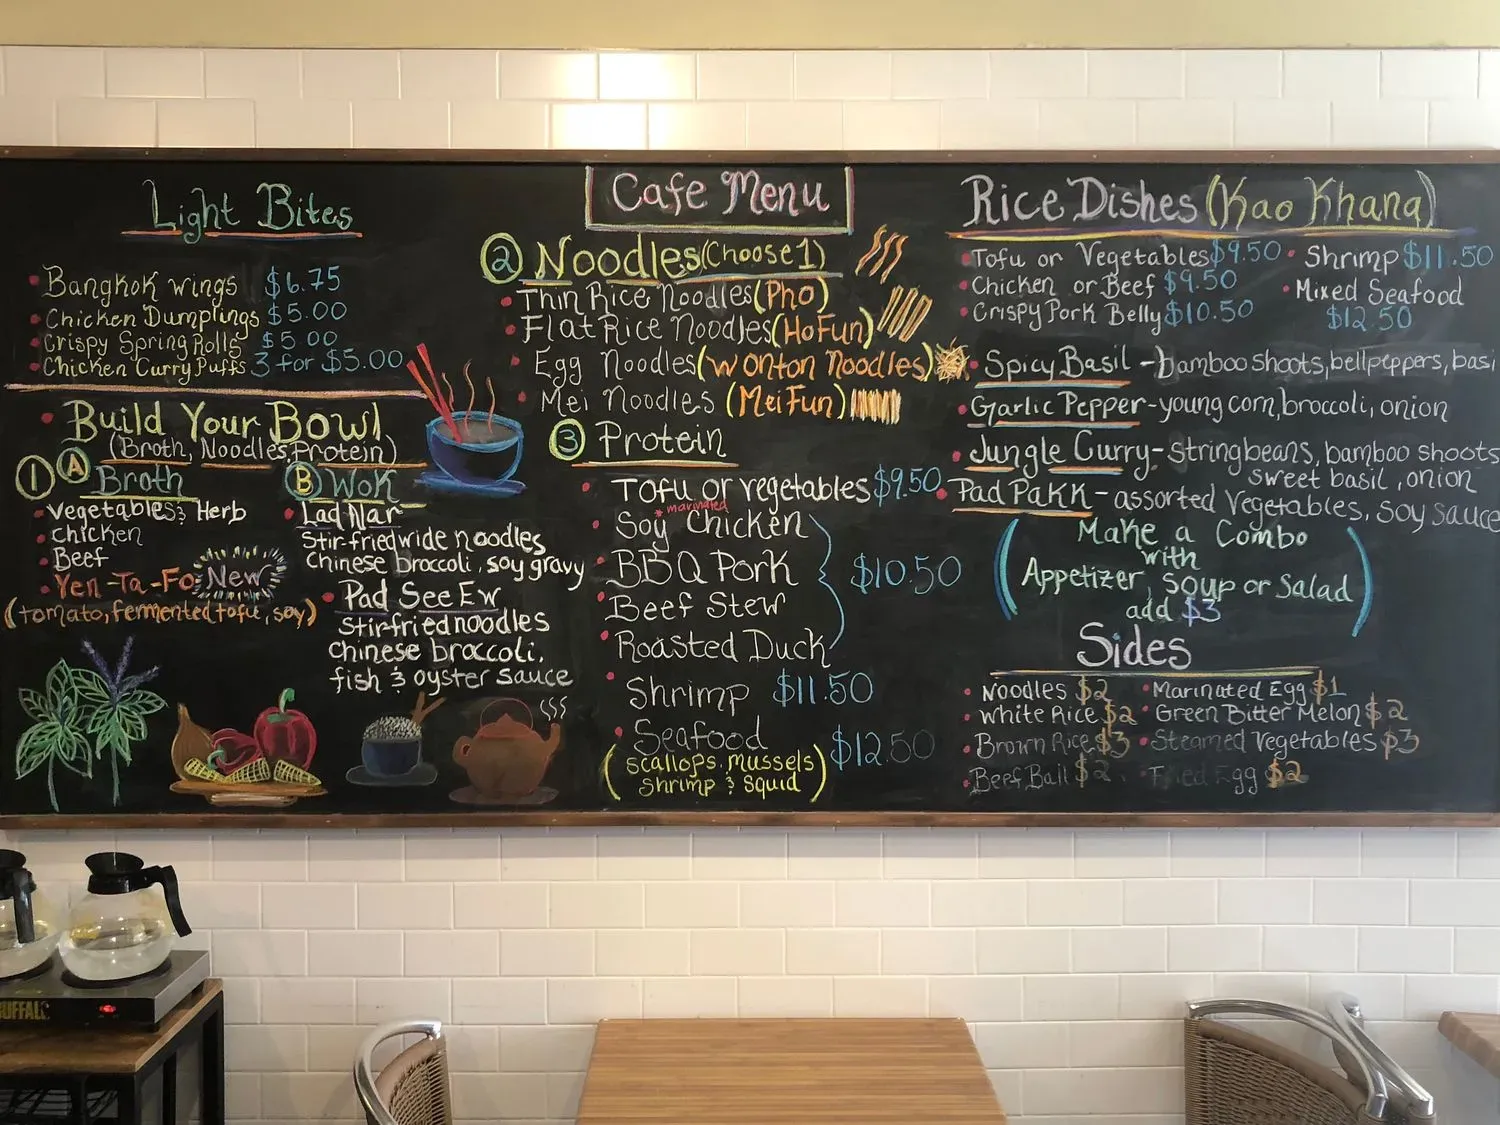 Cafe Menu
Light Bites
Bangkok wings $6.75
Chicken Dumplings $5.00
Crispy Spring Rolls $5.00
Chicken Curry Puffs 3 for $5.00
Build Your Bowl
(Broth, Noodles, Protein)
1 A Broth
Vegetables & Herb
Chicken
Beef
Yen-Ta-Fo New
(tomato, fermented tofu, soy)
B Wok
Lad Nar
Stir-fried wide noodles
Chinese broccoli, soy gravy
Pad See Ew
Stirfried noodles
chinese broccoli,
fish & oyster sauce
2 Noodles (Choose 1)
Thin Rice Noodles (Pho)
Flat Rice Noodles (Ho Fun)
Egg Noodles (wonton noodles)
Mei Noodles (Mei Fun)
3 Protein
Tofu or vegetables $9.50
*marinated
Soy Chicken
BBQ Pork
$10.50
Beef Stew
Roasted Duck
Shrimp $11.50
Seafood $12.50
(scallops, mussels
shrimp & squid)
Rice Dishes (Kao Khana)
Tofu or Vegetables $9.50
Chicken or Beef $9.50
Crispy Pork Belly $10.50
Shrimp $11.50
Mixed Seafood
$12.50
Spicy Basil - bamboo shoots, bellpeppers, basi
Garlic Pepper - young corn, broccoli, onion
Jungle Curry - stringbeans, bamboo shoots
sweet basil, onion
Pad Pakk - assorted vegetables, soy sauce
(Make a Combo
with
Appetizer, soup or salad
add $3)
Sides
Noodles $2
White Rice $2
Brown Rice $3
Beef Ball $2
Marinated Egg $1
Green Bitter Melon $2
Steamed Vegetables $3
Fried Egg $2
BUFFALO